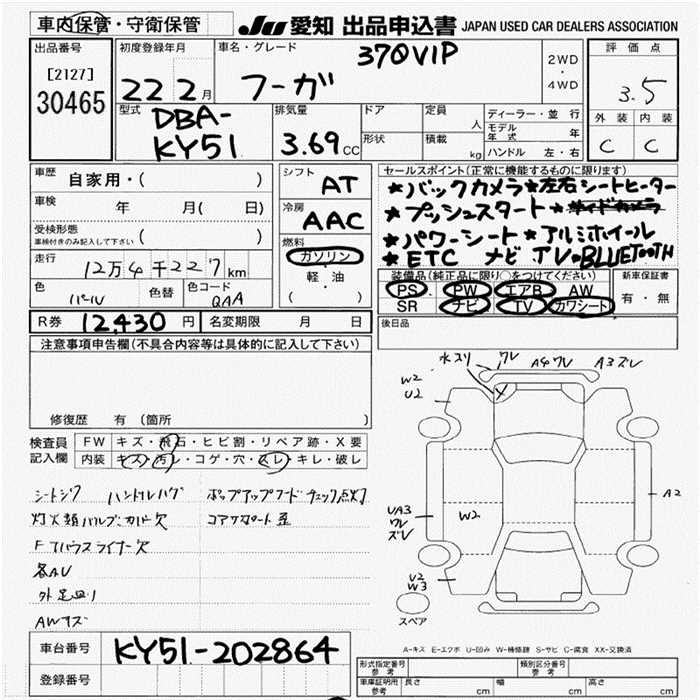 車内保管・守衛保管
JU 愛知 出品申込書 JAPAN USED CAR DEALERS ASSOCIATION
出品番号 初度登録年月 車名・グレード 370VIP 2WD ・ 4WD 評価点
[2127] 30465 22 2月 フーガ 3.5
型式 DBA-KY51 排気量 3.69 CC ドア 定員 人 ディーラー・並行 外装 内装
形状 積載 kg モデル年式 年 C C
ハンドル 左・右
車歴 自家用・( ) シフト AT セールスポイント(正常に機能するものに限ります)
車検 年 月( 日) 冷房 AAC ★バックカメラ★左右シートヒーター
受検形態 ( ) ★プッシュスタート★サイドカメラ
車検付きのみ記入して下さい 燃料 ガソリン ★パワーシート★アルミホイール
走行 12万4千227km 軽・油 ★ETC ナビTV・BLUETOOTH
色 パール 色替 色コード QAA ( ) 装備品(純正品に限り○をつけてください) 新車保証書
PS PW エアB AW 有・無
SR ナビ TV カワシート
R券 12,430円 名変期限 月 日 後日品
注意事項申告欄(不具合内容等は具体的に記入して下さい)
修復歴 有(箇所
検査員 FW キズ・飛石・ヒビ割・リペア跡・X要
記入欄 内装 キズ・汚レ・コゲ・穴・スレ・キレ・破レ
シートシワ ハンドルハゲ ポップアップフードチェック点灯
灯火類バルブ.カバー欠 コアサポート歪
Fフハウスライナー欠
各AU
外足廻り
AWキズ
水スリ ワレ A4ワレ A3ズレ
W2
U2
UA3
ワレ
ズレ
W2
A2
U2
W3
スペア
A-キズ E-エクボ U-凹み W-補修跡 S-サビ C-腐食 XX-交換済
車台番号 KY51-202864
登録番号
形式指定番号 参考 類別区分番号 参考
車庫証明用 参考 長さ cm 幅 cm 高さ cm